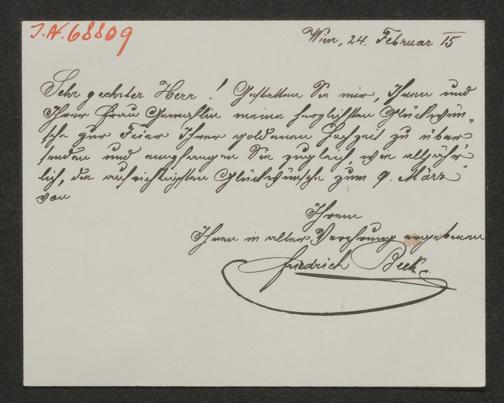 J.N. 68809
Wien, 24. Februar 15
Sehr geehrter Herr! Gestatten Sie mir, Ihnen und
Ihrer Frau Gemahlin meine herzlichsten Glückwün-
sche zur Feier Ihrer goldenen Hochzeit zu über-
senden und empfangen Sie zugleich, wie alljähr-
lich, die aufrichtigsten Glückwünsche zum 9. März
von
Ihrem
Ihnen in alter Verehrung ergebenen
Friedrich Beck